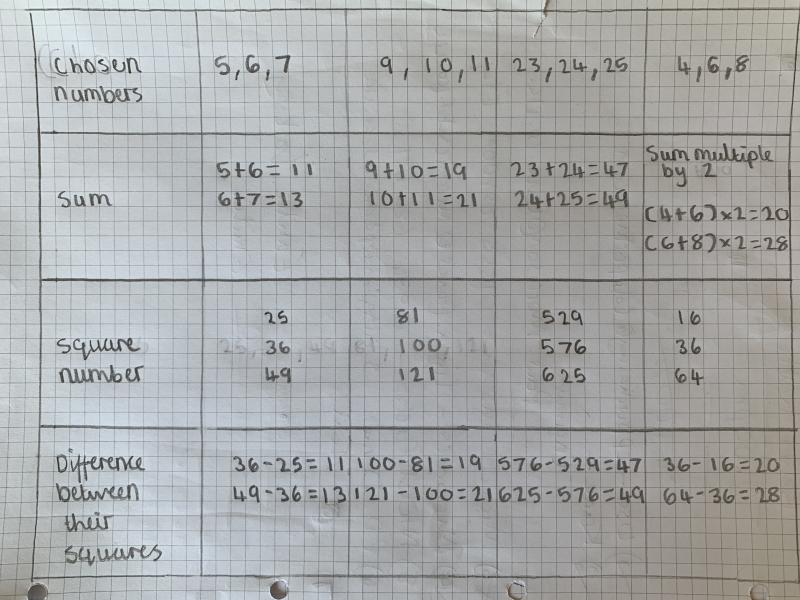 Chosen numbers 5,6,7 9, 10, 11 23, 24, 25 4, 6, 8
Sum multiple by 2
5+6=11 9+10=19 23+24=47
Sum 6+7=13 10+11=21 24+25=49 (4+6)×2=20
(6+8)×2=28
25 81 529 16
square 36 100 576 36
number 49 121 625 64
Difference 36-25=11 100-81=19 576-529=47 36-16=20
between 49-36=13 121-100=21 625-576=49 64-36=28
their
squares